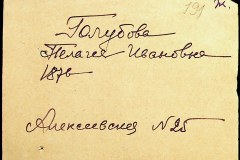 191 ж.
Голубова
Пелагея Ивановна
1876
Алексеевская N 25